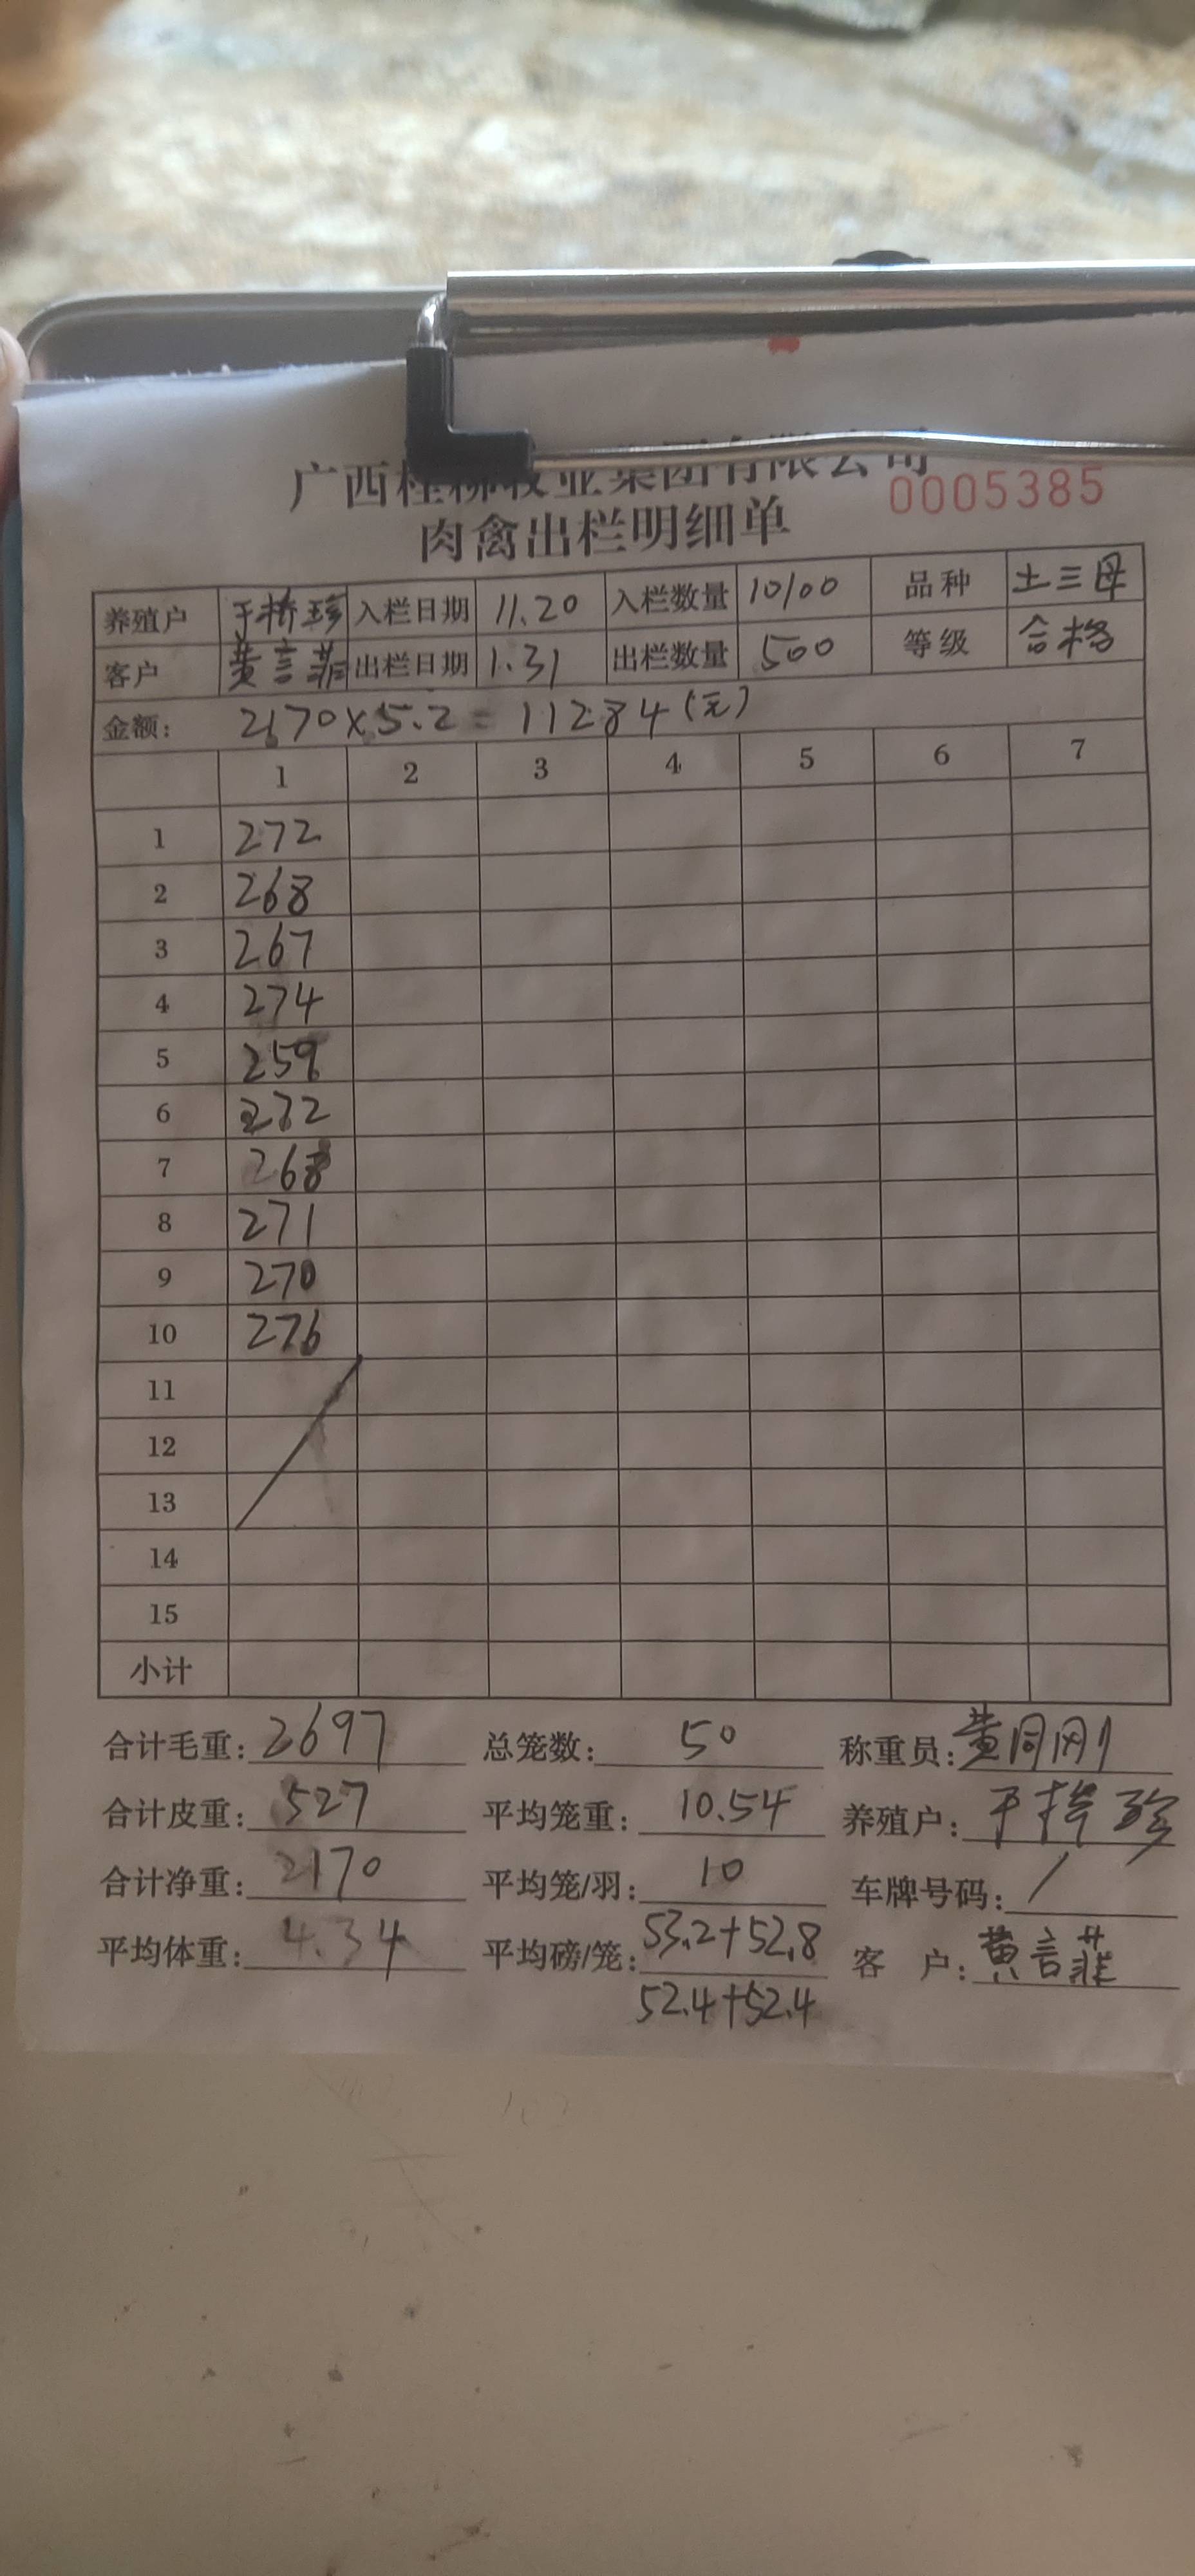 广西桂柳牧业集团有限公司
0005385
肉禽出栏明细单
养殖户 于桥珍 入栏日期 11.20 入栏数量 10100 品种 土三母
客户 黄言菲 出栏日期 1.31 出栏数量 500 等级 合格
金额: 2170×5.2=11284(元)
1 2 3 4 5 6 7
1 272
2 268
3 267
4 274
5 259
6 272
7 268
8 271
9 270
10 276
11
12
13
14
15
小计
合计毛重: 2697 总笼数: 50 称重员: 黄同刚
合计皮重: 527 平均笼重: 10.54 养殖户:
合计净重: 2170 平均笼/羽: 10 车牌号码: /
平均体重: 4.34 平均磅/笼: 53.2+52.8 客 户: 黄言菲
52.4+52.4